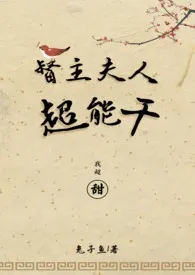 督主夫人
超能干
我超
甜
兔子鱼/著